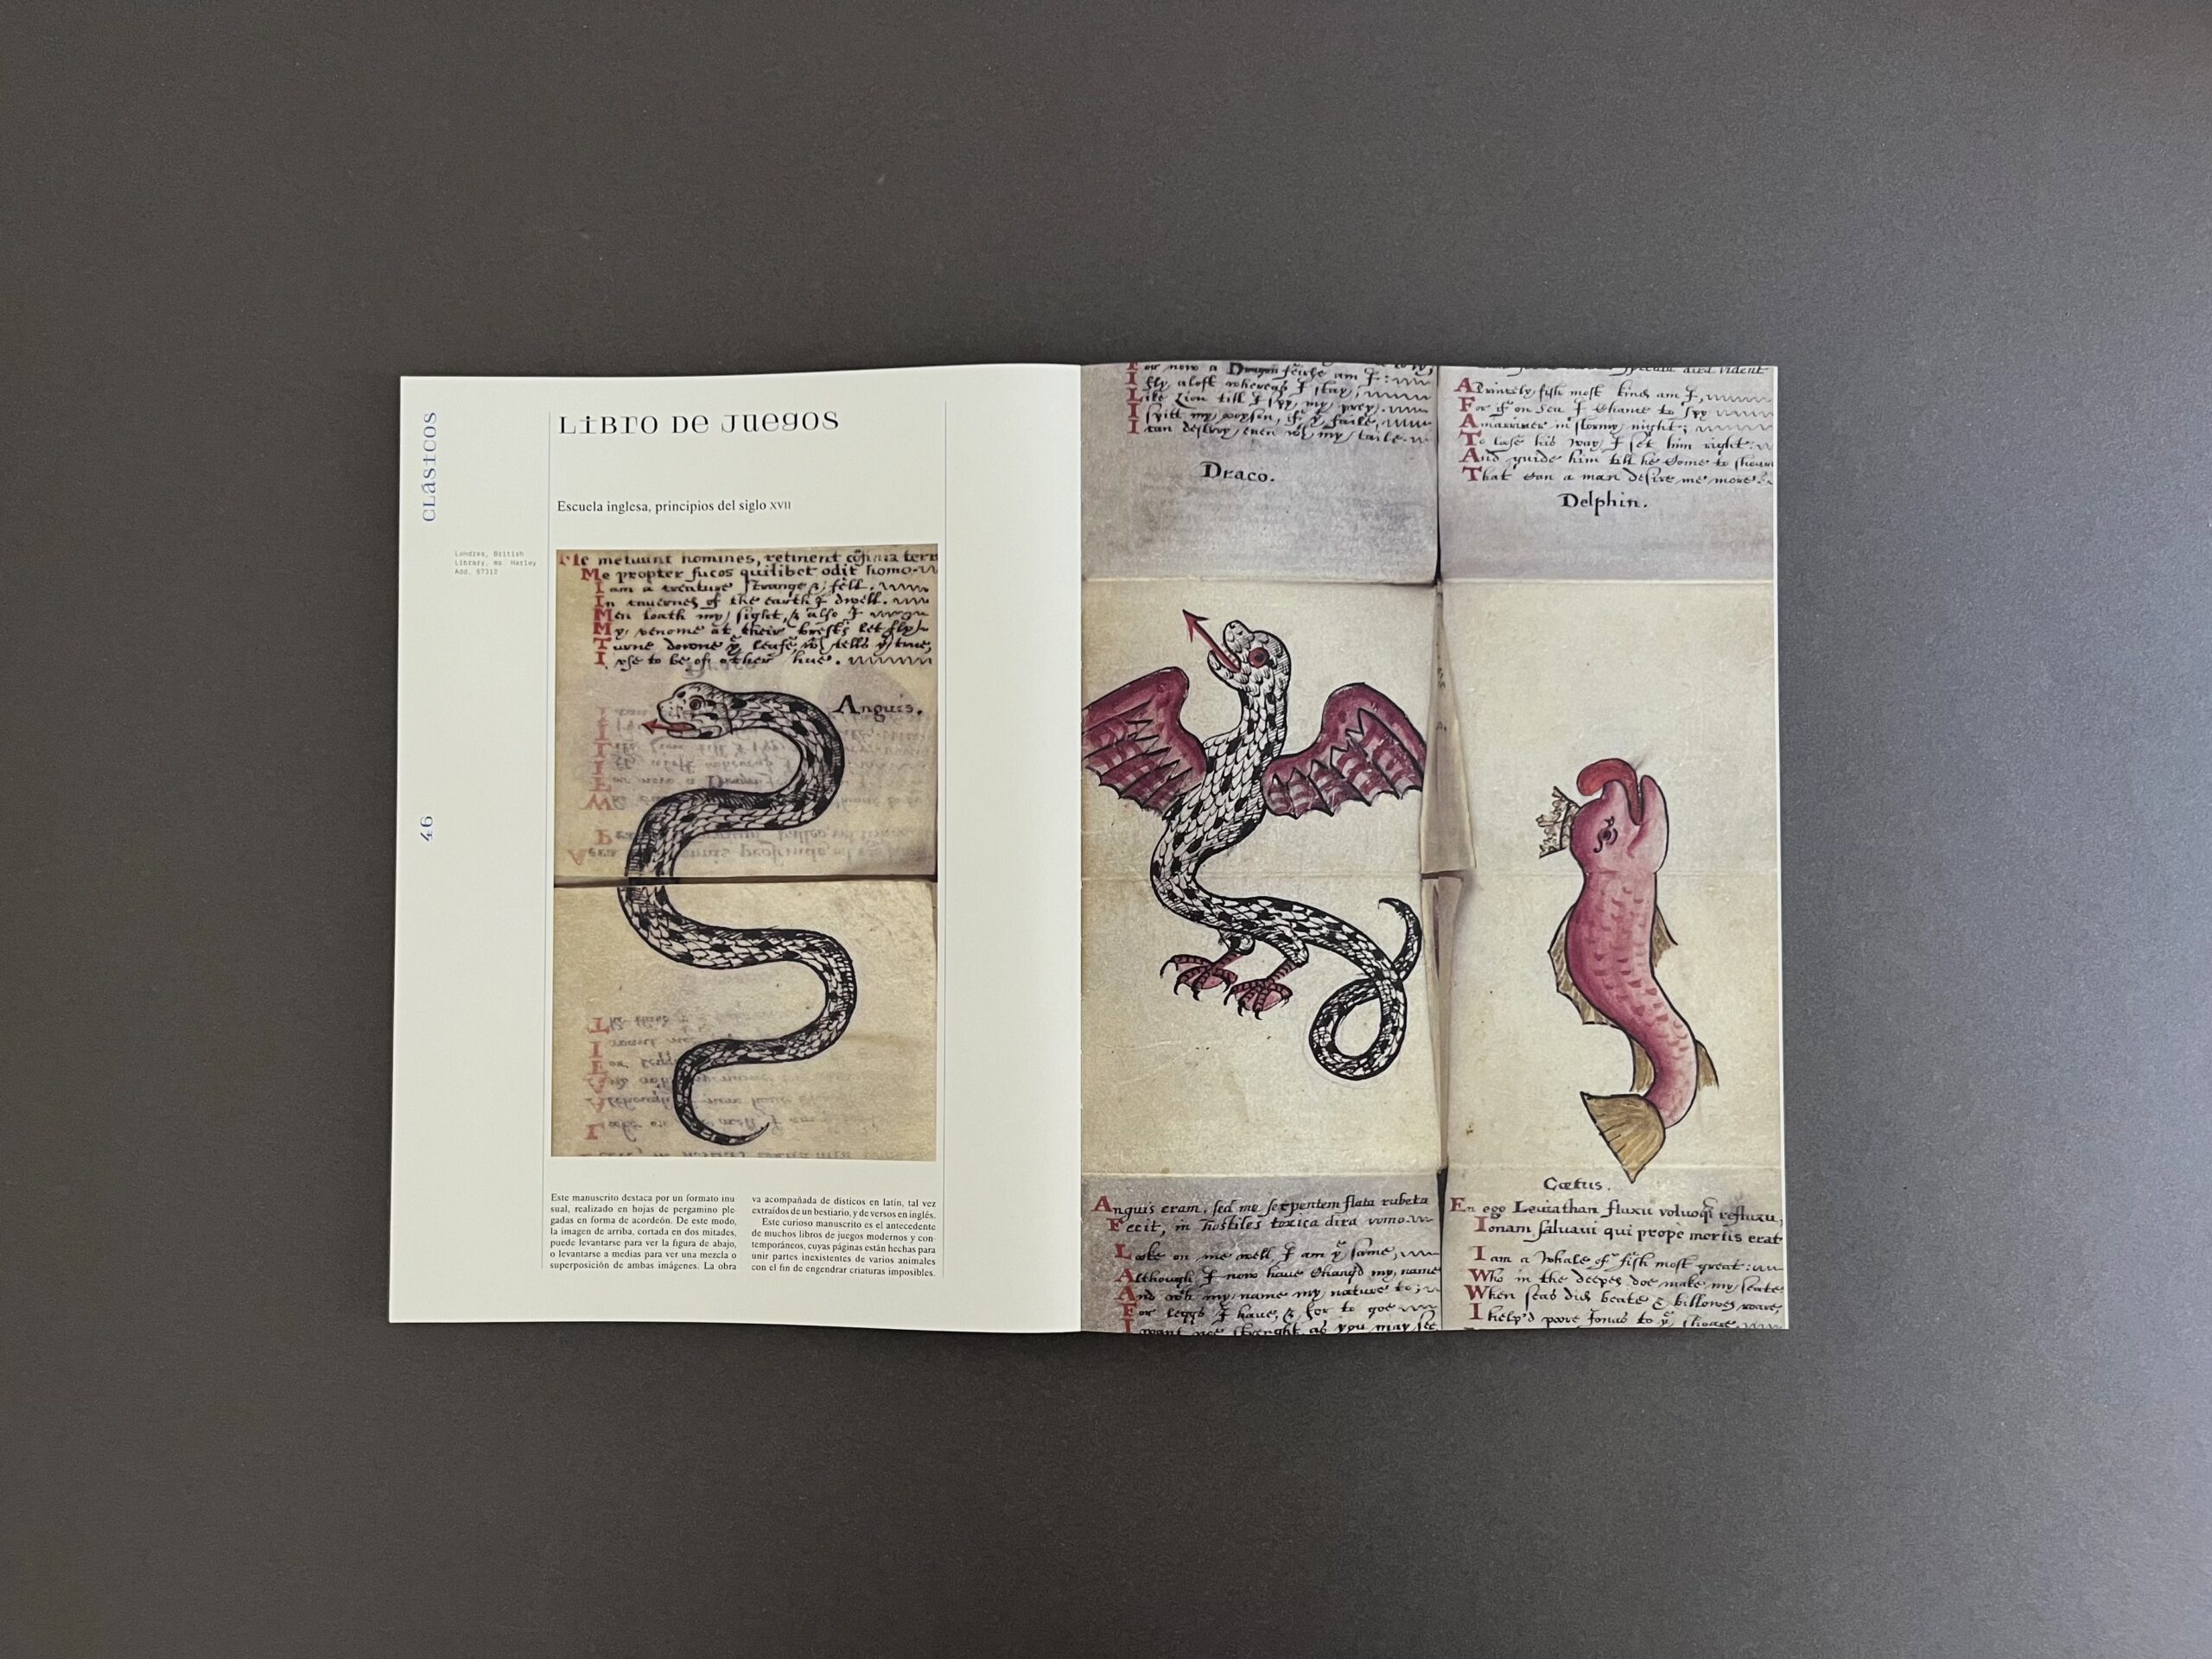 CLÁSICOS
46
LIBRO DE JUEGOS
Escuela inglesa, principios del siglo XVII
Londres, British
Library, ms Harley
Add. 57312
Me metuunt homines, retinent
Me propter sucos quilibet odit homo
I am a creature strange & fell.
In cavernes of the earth I dwell.
Men loath my sight, & also I
My venome at their brests let fly
Turne downe yͤ leafe, wᶜʰ tells yͤ true,
I use to be of other hue.
Anguis.
Este manuscrito destaca por un formato inu
sual, realizado en hojas de pergamino ple-
gadas en forma de acordeón. De este modo,
la imagen de arriba, cortada en dos mitades,
puede levantarse para ver la figura de abajo,
o levantarse a medias para ver una mezcla o
superposición de ambas imágenes. La obra
va acompañada de dísticos en latín, tal vez
extraídos de un bestiario, y de versos en inglés.
Este curioso manuscrito es el antecedente
de muchos libros de juegos modernos y con-
temporáneos, cuyas páginas están hechas para
unir partes inexistentes de varios animales
con el fin de engendrar criaturas imposibles.
For now a Dragon feirche am I
I fly aloft whereas I stay,
Like Lion till I spy my prey.
I spitt my poyson, if yᵗ faile,
I can destroy even wᵗʰ my taile.
Draco.
Anguis eram, sed me serpentem flata rubeta
Fecit, in hostiles toxica dira vomo.
Looke on me well I am yͤ same,
Although I now have chang'd my name
And wᵗʰ my name my nature to;
For leggs I have, & for to goe
I want not strenght as you may see
A Princely fish most kind am I,
For if on sea I chance to spy
A marriner in stormy night;
To lose his way, I set him right:
And guide him till he come to shoare
That can a man desire me more.
Delphin.
Cœtus.
En ego Leviathan fluxu volvoq refluxu,
Ionam salvavi qui prope mortis erat
I am a Whale of fish most great:
Who in the deepes doe make my seate
When seas did beate & billowes roare,
I help'd poore Jonas to yͤ shoare.